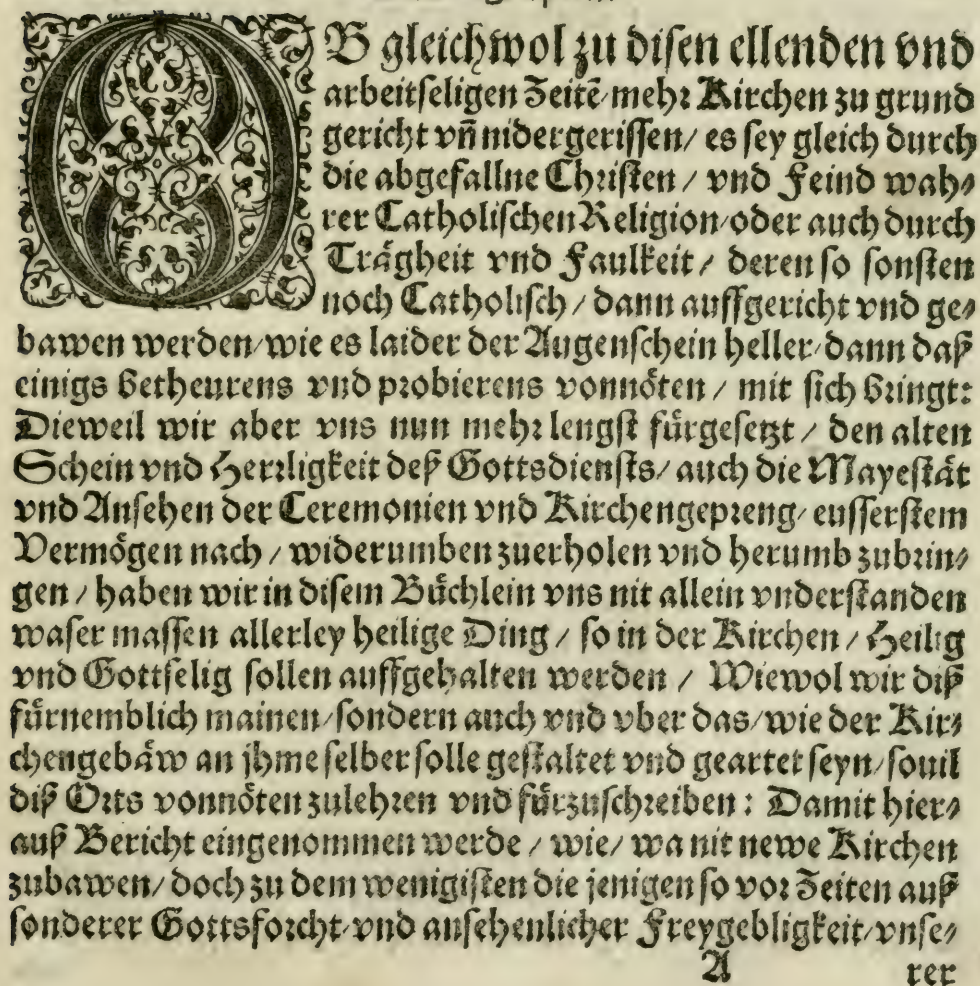 OB gleichwol zu disen ellenden vnd
arbeitseligen Zeitē/mehr Kirchen zu grund
gericht vñ nidergerissen/ es sey gleich durch
die abgefallne Christen / vnd Feind wah⸗
rer Catholischen Religion/oder auch durch
Trägheit vnd Faulkeit / deren so sonsten
noch Catholisch / dann auffgericht vnd ge⸗
bawen werden/wie es laider der Augenschein heller/dann daß
einigs betheurens vnd probierens vonnöten / mit sich bringt:
Dieweil wir aber vns nun mehr lengst fürgesetzt / den alten
Schein vnd Herrligkeit deß Gottsdiensts/ auch die Mayestät
vnd Ansehen der Ceremonien vnd Kirchengepreng/ eusserstem
Vermögen nach / widerumben zuerholen vnd herumb zubrin⸗
gen / haben wir in disem Büchlein vns nit allein vnderstanden
waser massen allerley heilige Ding / so in der Kirchen / Heilig
vnd Gottselig sollen auffgehalten werden / Wiewol wir diß
fürnemblich mainen/sondern auch vnd vber das/wie der Kir⸗
chengebäw an jhme selber solle gestaltet vnd geartet seyn/souil
diß Orts vonnöten zulehren vnd fürzuschreiben: Damit hier⸗
auß Bericht eingenommen werde / wie/ wa nit newe Kirchen
zubawen/ doch zu dem wenigisten die jenigen so vor Zeiten auß
sonderer Gottsforcht/vnd ansehenlicher Freygebligkeit/vnse⸗
A rer